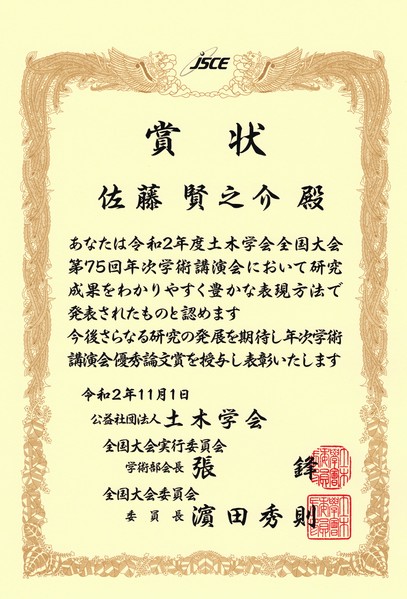 JSCE
賞状
佐藤 賢之介 殿
あなたは令和2年度土木学会全国大会
第75回年次学術講演会において研究
成果をわかりやすく豊かな表現方法で
発表されたものと認めます
今後さらなる研究の発展を期待し年次学術
講演会優秀論文賞を授与し表彰いたします
令和2年11月1日
公益社団法人 土木学会
全国大会実行委員会
学術部会長 張 鋒
全国大会委員会
委員長 濵田秀則